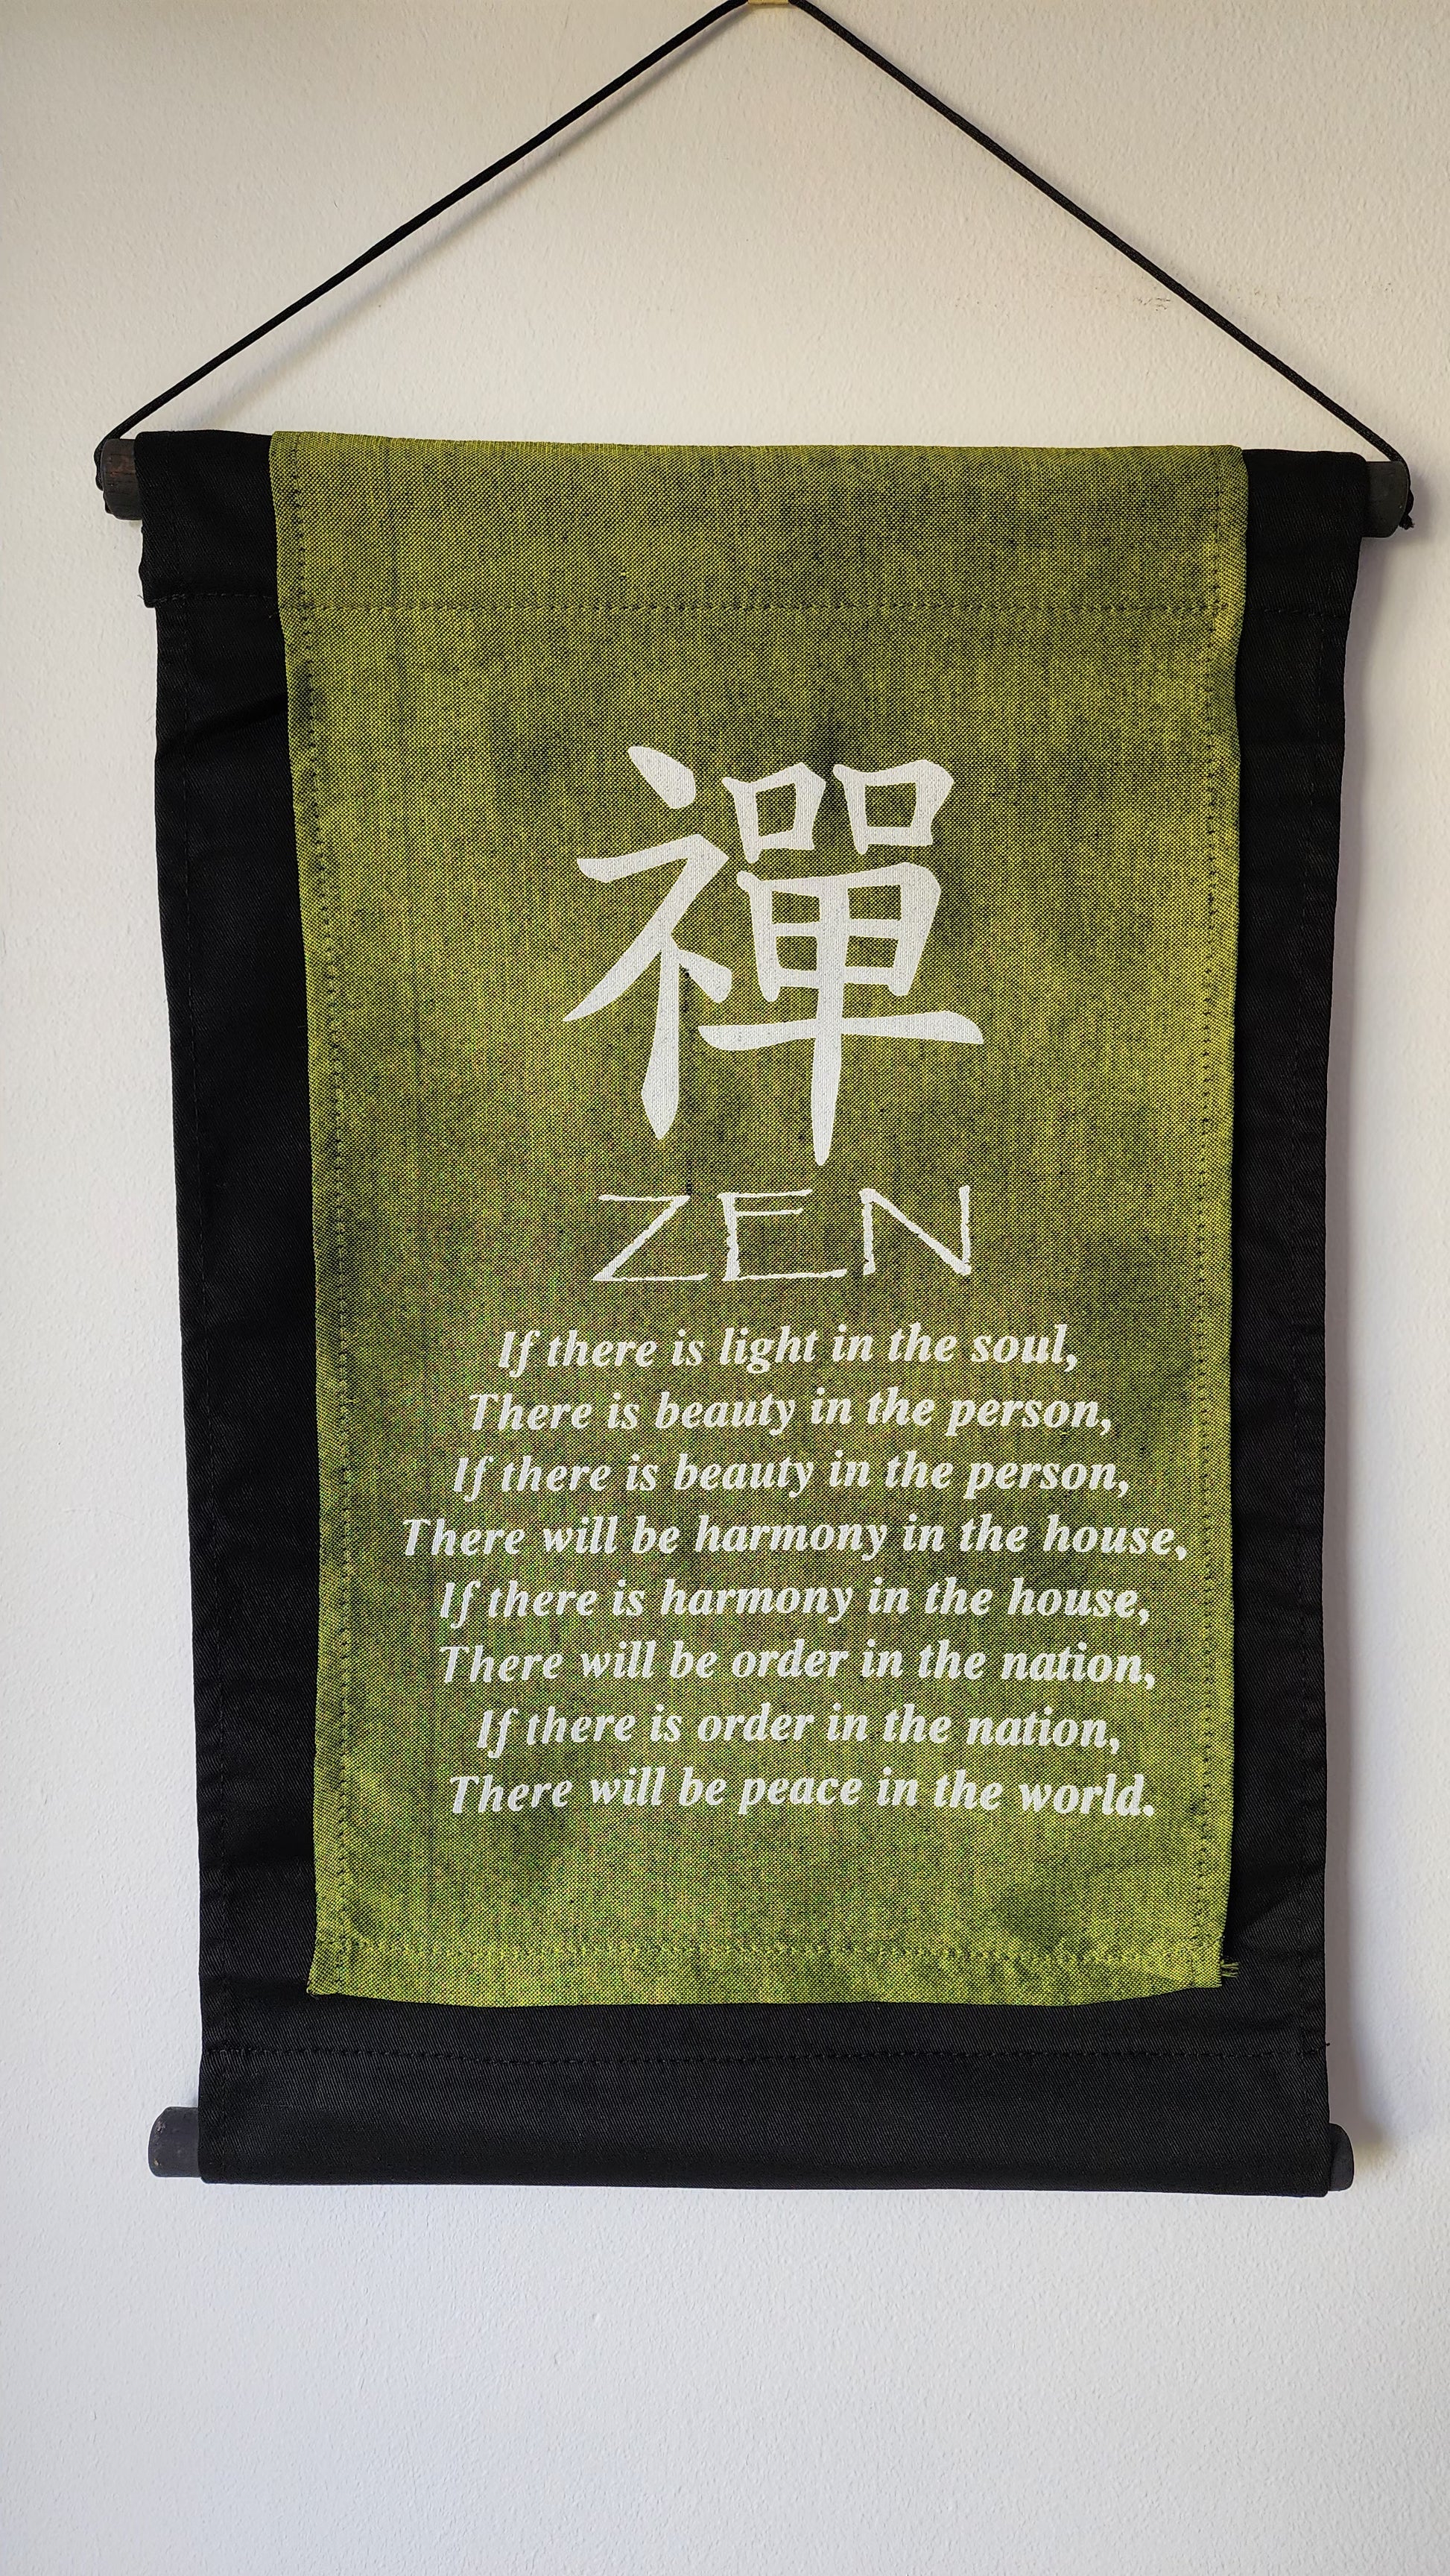 禪
ZEN
If there is light in the soul,
There is beauty in the person,
If there is beauty in the person,
There will be harmony in the house,
If there is harmony in the house,
There will be order in the nation,
If there is order in the nation,
There will be peace in the world.